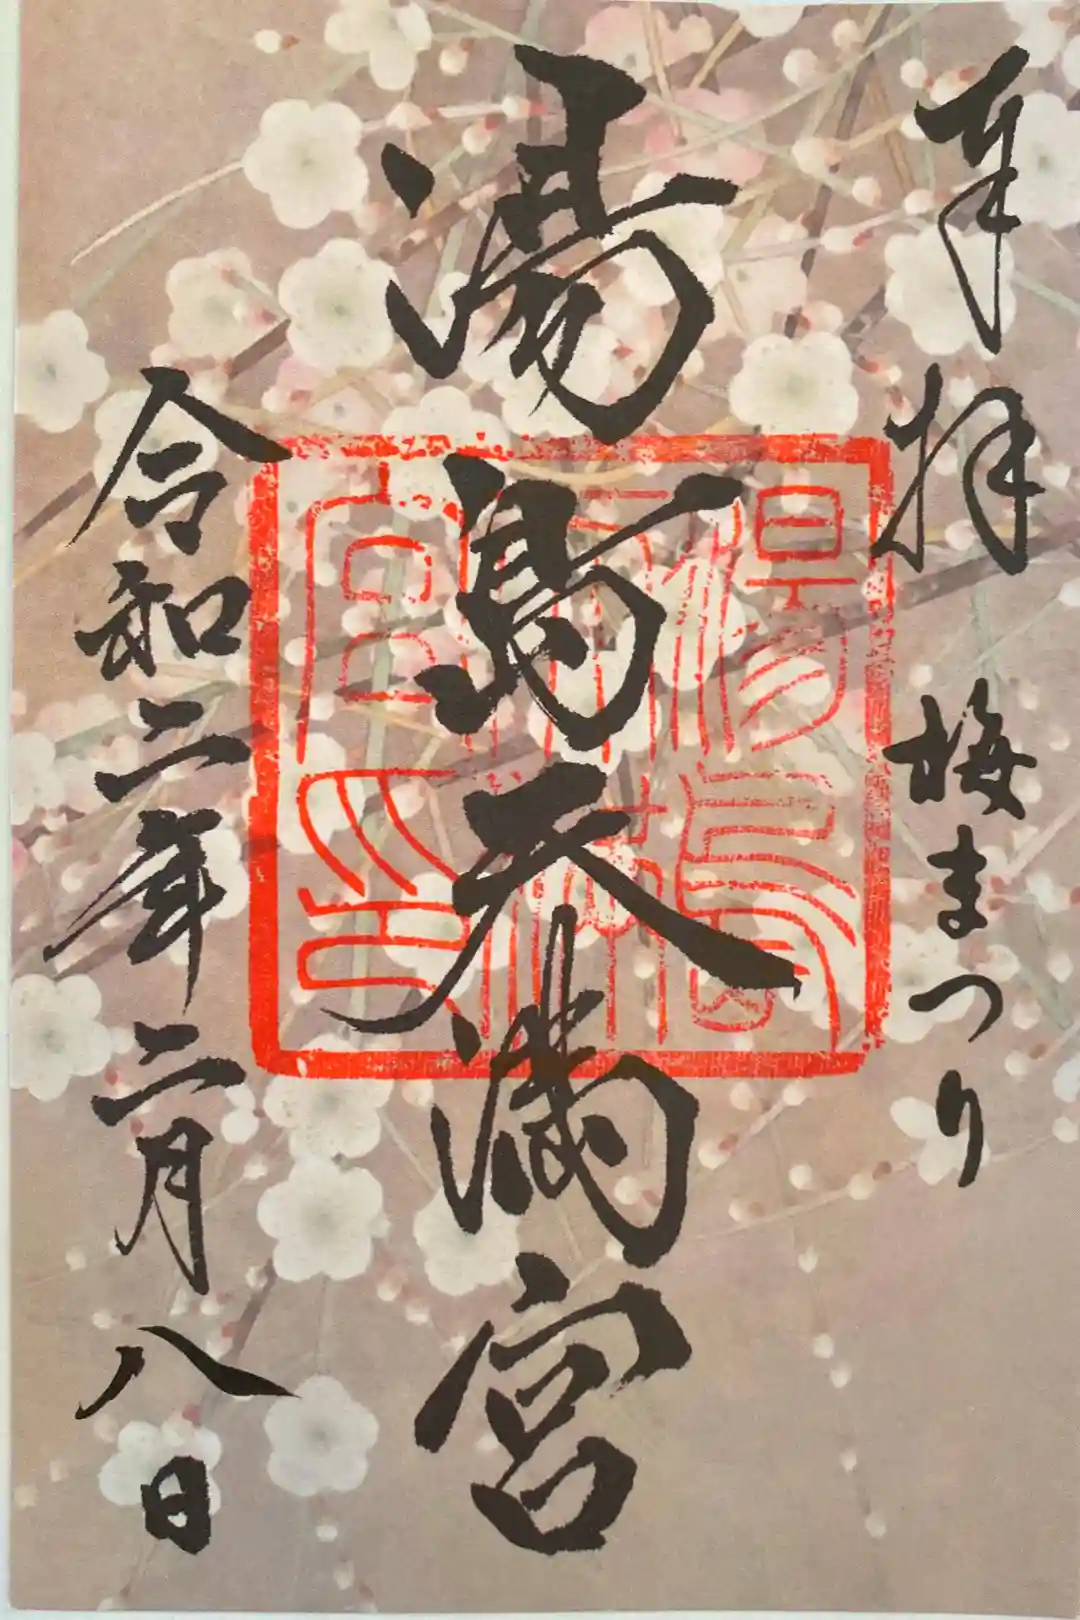 奉拝　梅まつり
湯島天満宮
令和二年二月八日
湯島神社
宮印